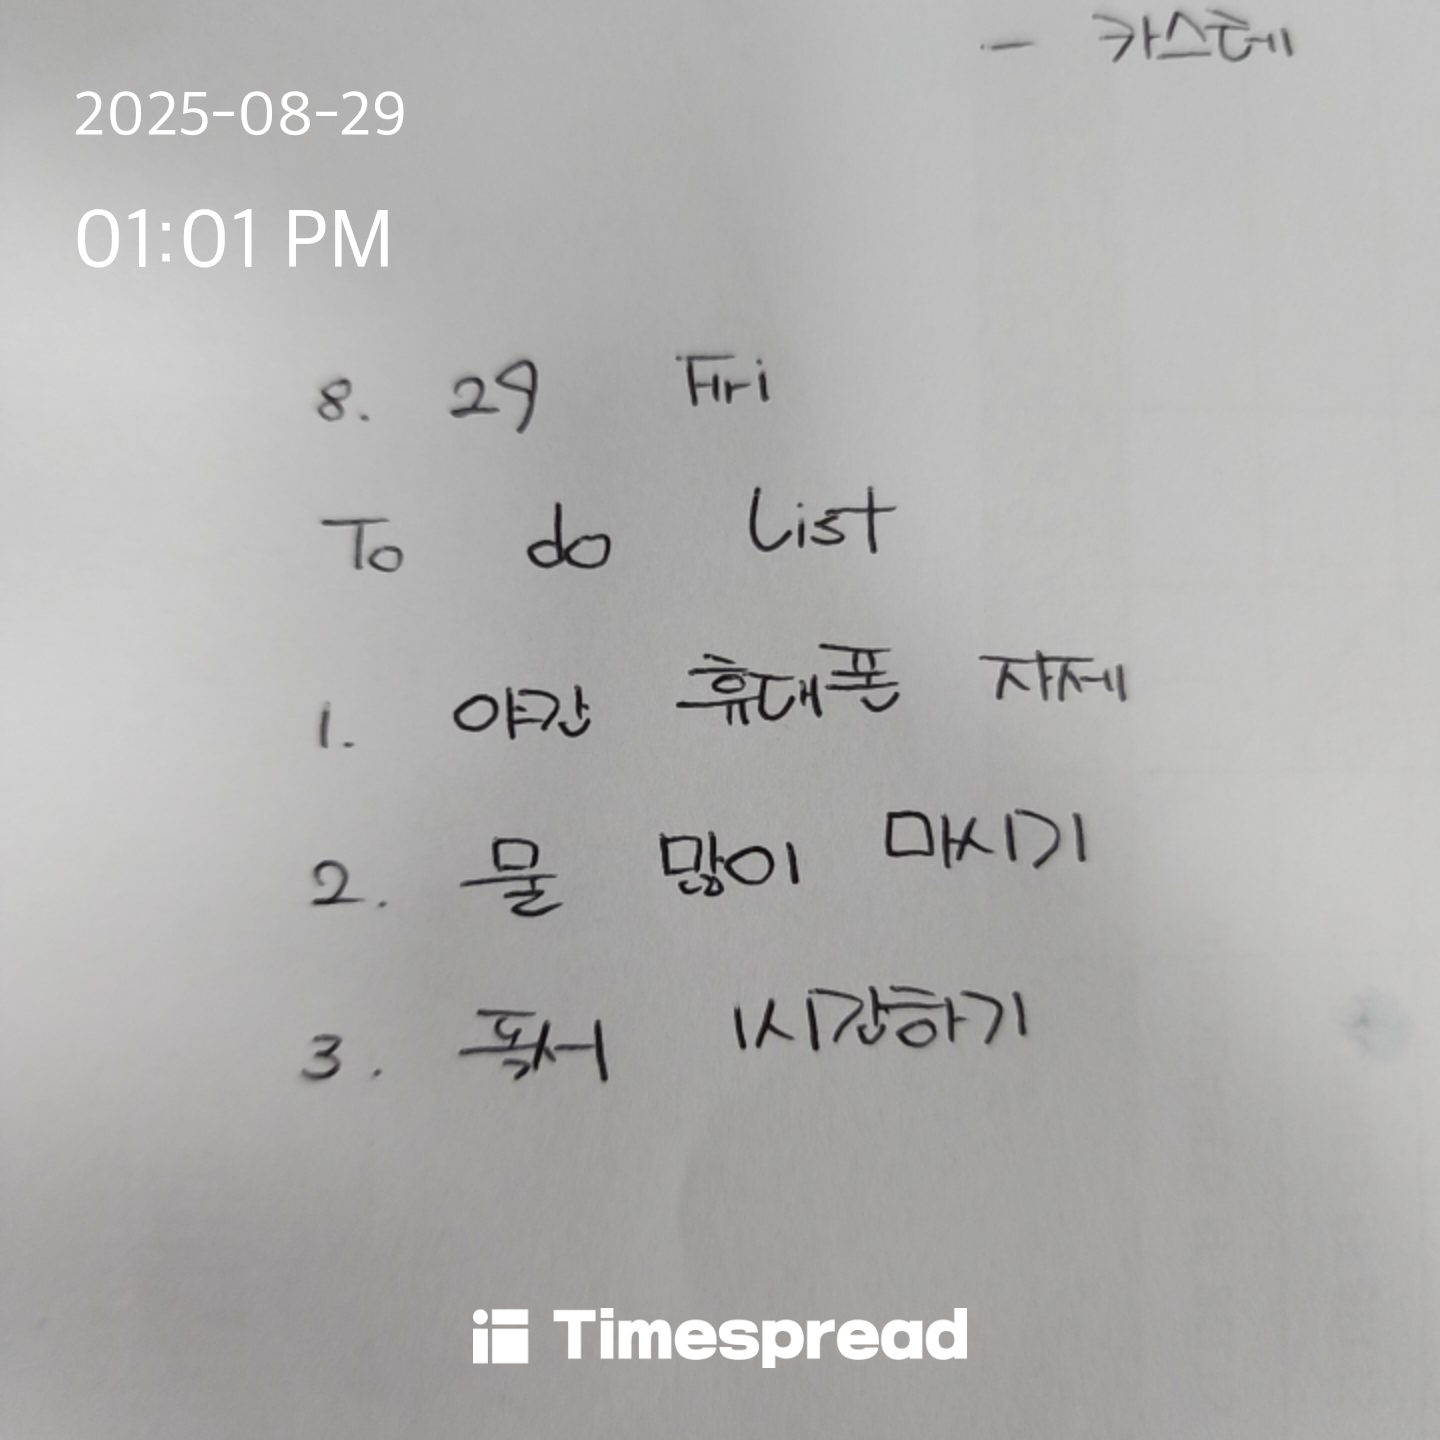 - 카스테
2025-08-29
01:01 PM
8. 29 Fri
To do List
1. 야간 휴대폰 자제
2. 물 많이 마시기
3. 독서 1시간하기
Timespread